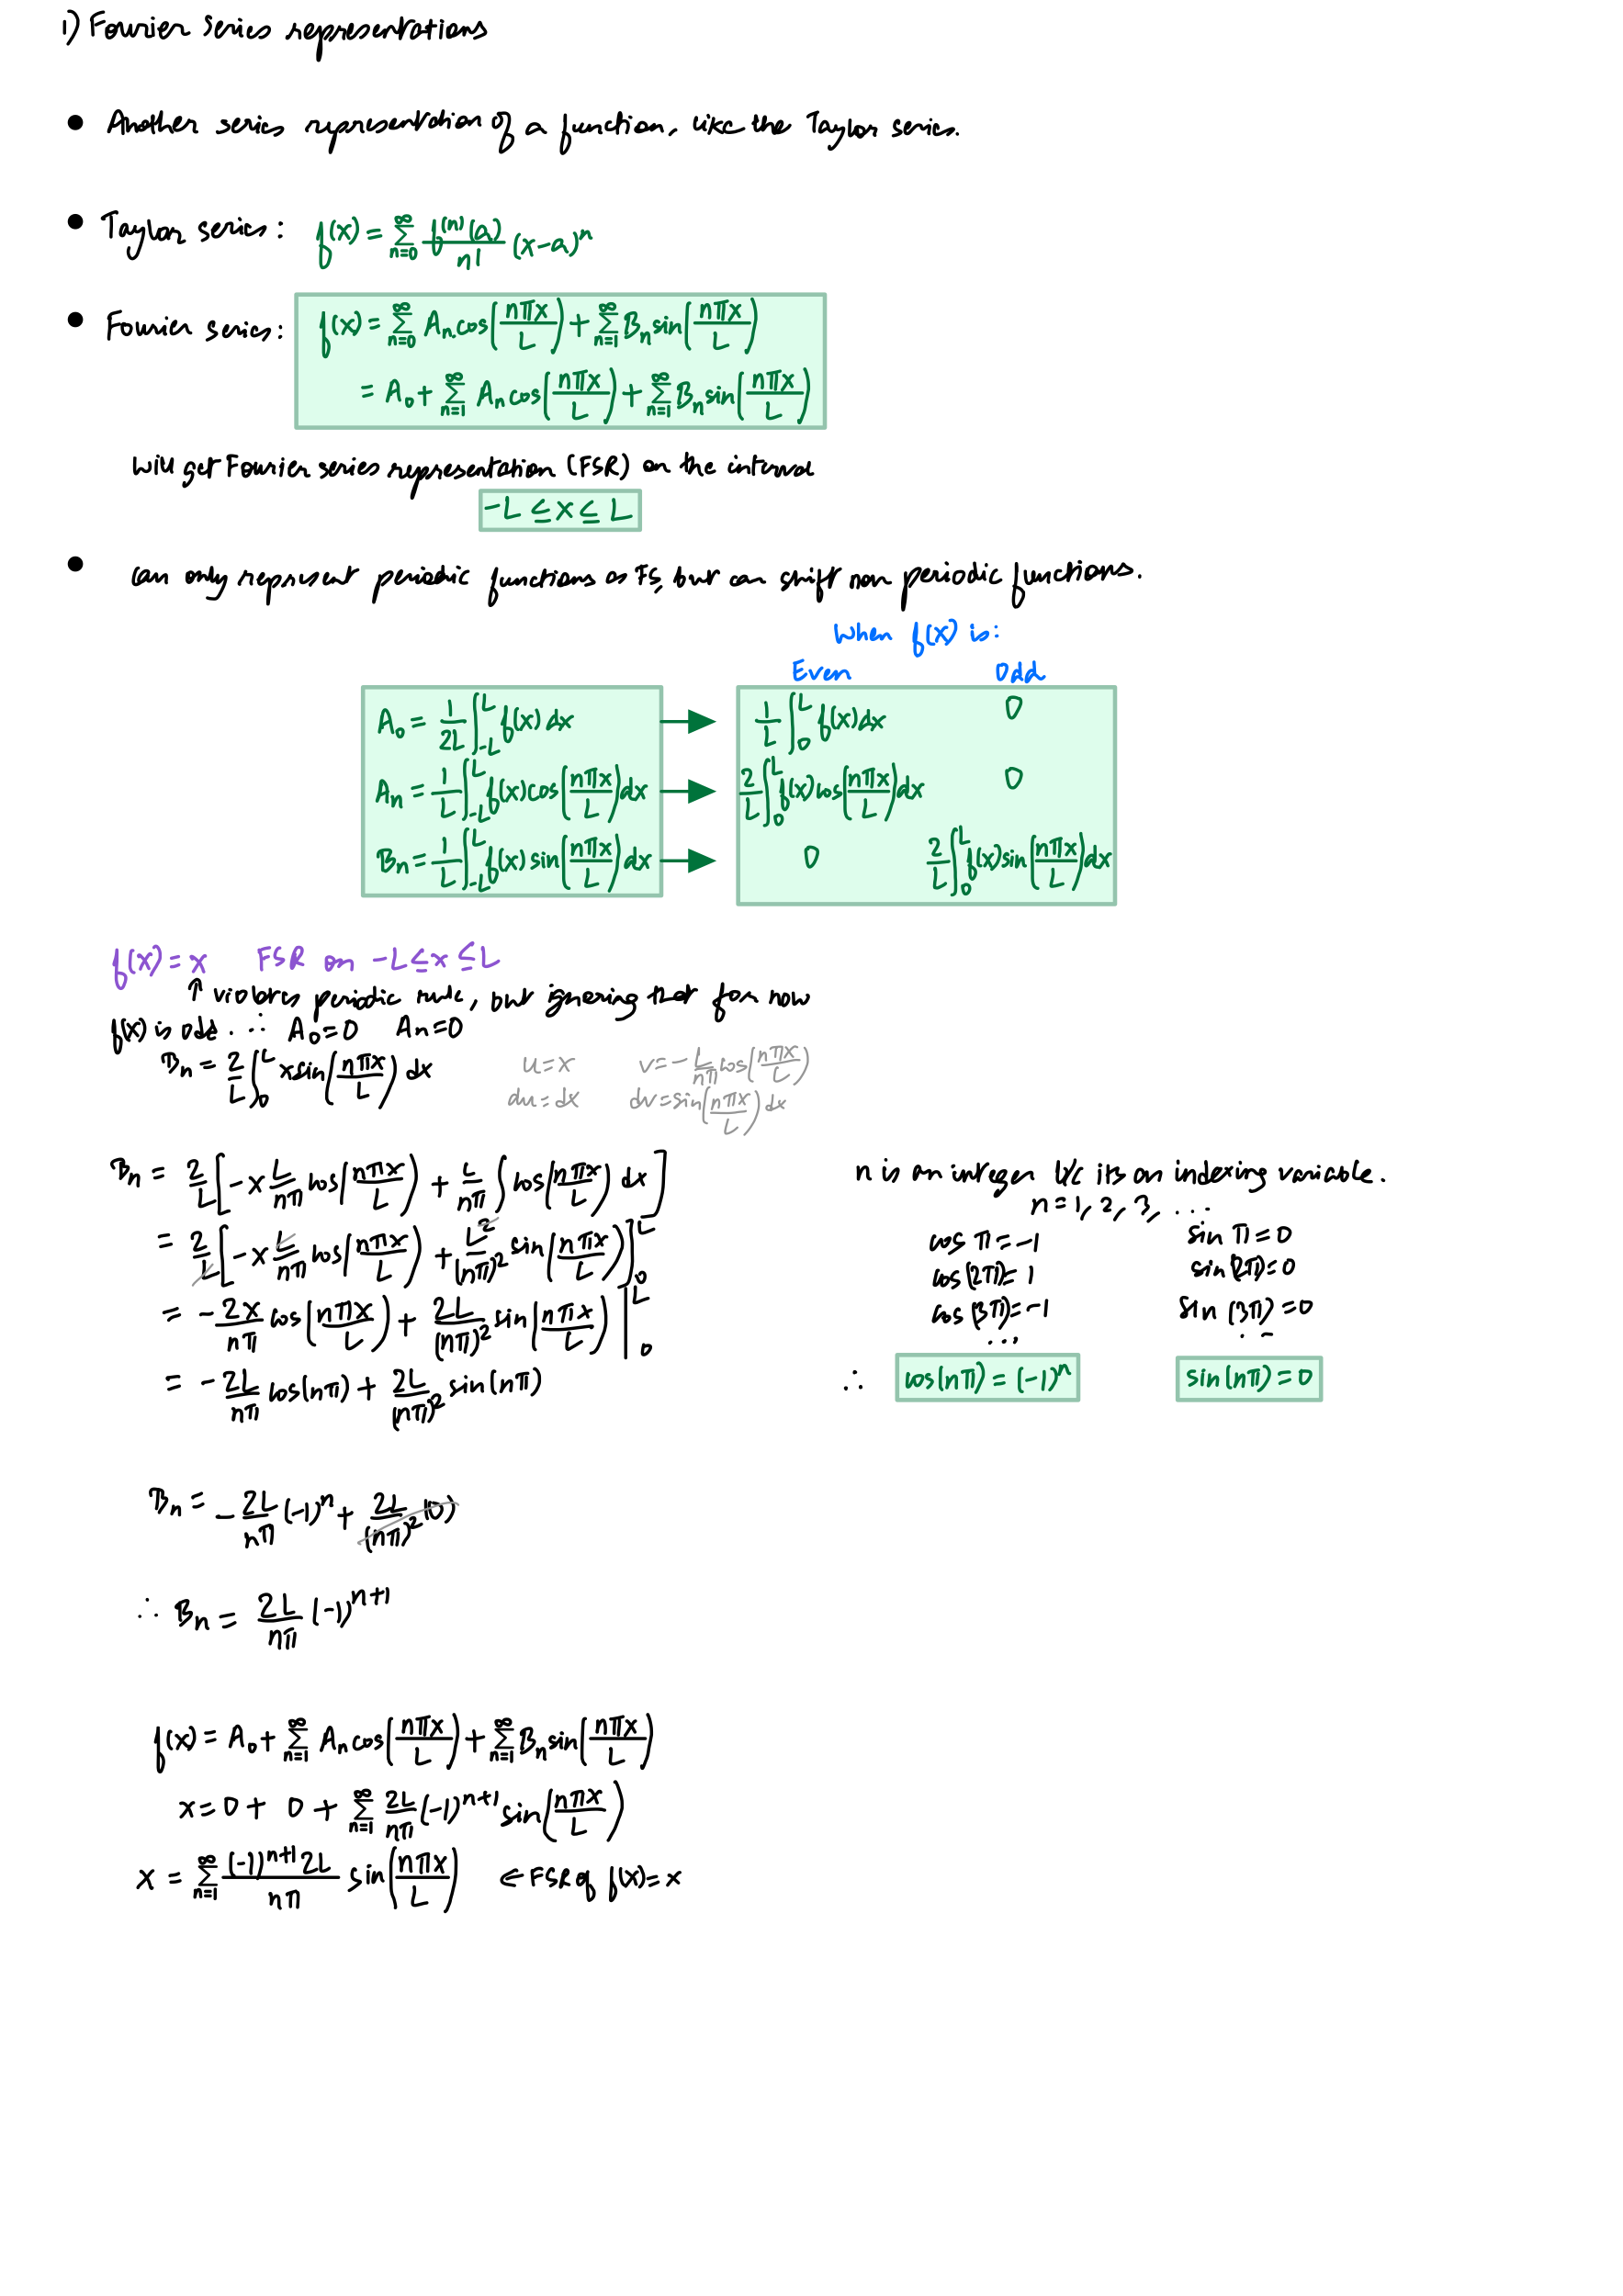 1) Fourier series representations
• Another series representation of a function, like the Taylor series.
• Taylor series: f(x) = ∑_{n=0}^{∞} f^{(n)}(a)/n! (x-a)^n
• Fourier series: f(x) = ∑_{n=0}^{∞} A_n cos(nπx/L) + ∑_{n=1}^{∞} B_n sin(nπx/L)
= A_0 + ∑_{n=1}^{∞} A_n cos(nπx/L) + ∑_{n=1}^{∞} B_n sin(nπx/L)
will get Fourier series representation (FSR) on the interval
-L ≤ x ≤ L
• can only represent periodic functions as FS, but can shift non periodic functions.
When f(x) is:
Even Odd
A_0 = 1/2L ∫_{-L}^{L} f(x) dx → 1/L ∫_0^L f(x)dx 0
A_n = 1/L ∫_{-L}^{L} f(x)cos(nπx/L)dx → 2/L ∫_0^L f(x)cos(nπx/L)dx 0
B_n = 1/L ∫_{-L}^{L} f(x)sin(nπx/L)dx → 0 2/L ∫_0^L f(x)sin(nπx/L)dx
f(x) = x FSR on -L ≤ x ≤ L
↑ violates periodic rule, but ignoring that for now
f(x) is odd. ∴ A_0=0 A_n=0
B_n = 2/L ∫_0^L x sin(nπx/L) dx u=x v=-L/nπ cos(nπx/L)
du=dx dv=sin(nπx/L)dx
B_n = 2/L [-x L/nπ cos(nπx/L) + L/nπ ∫cos(nπx/L) dx]
= 2/L [-x L/nπ cos(nπx/L) + L²/(nπ)² sin(nπx/L)]_0^L
= -2x/nπ cos(nπx/L) + 2L/(nπ)² sin(nπx/L) |_0^L
= -2L/nπ cos(nπ) + 2L/(nπ)² sin(nπ)
n is an integer b/c its an indexing variable.
n = 1, 2, 3, ...
cos π = -1 sin π = 0
cos(2π) = 1 sin(2π) = 0
cos(3π) = -1 sin(3π) = 0
... ...
∴ cos(nπ) = (-1)^n sin(nπ) = 0
B_n = -2L/nπ (-1)^n + 2L/(nπ)² (0)
∴ B_n = 2L/nπ (-1)^{n+1}
f(x) = A_0 + ∑_{n=1}^{∞} A_n cos(nπx/L) + ∑_{n=1}^{∞} B_n sin(nπx/L)
x = 0 + 0 + ∑_{n=1}^{∞} 2L/nπ (-1)^{n+1} sin(nπx/L)
x = ∑_{n=1}^{∞} (-1)^{n+1} 2L/nπ sin(nπx/L) ← FSR of f(x) = x